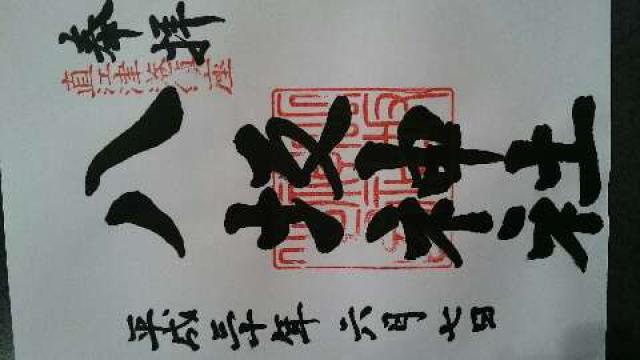 奉拝
直江津鎮座
八坂神社
平成三十年六月七日